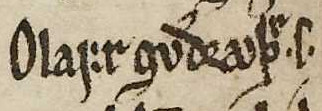 Olafr gvðrøþ .s.